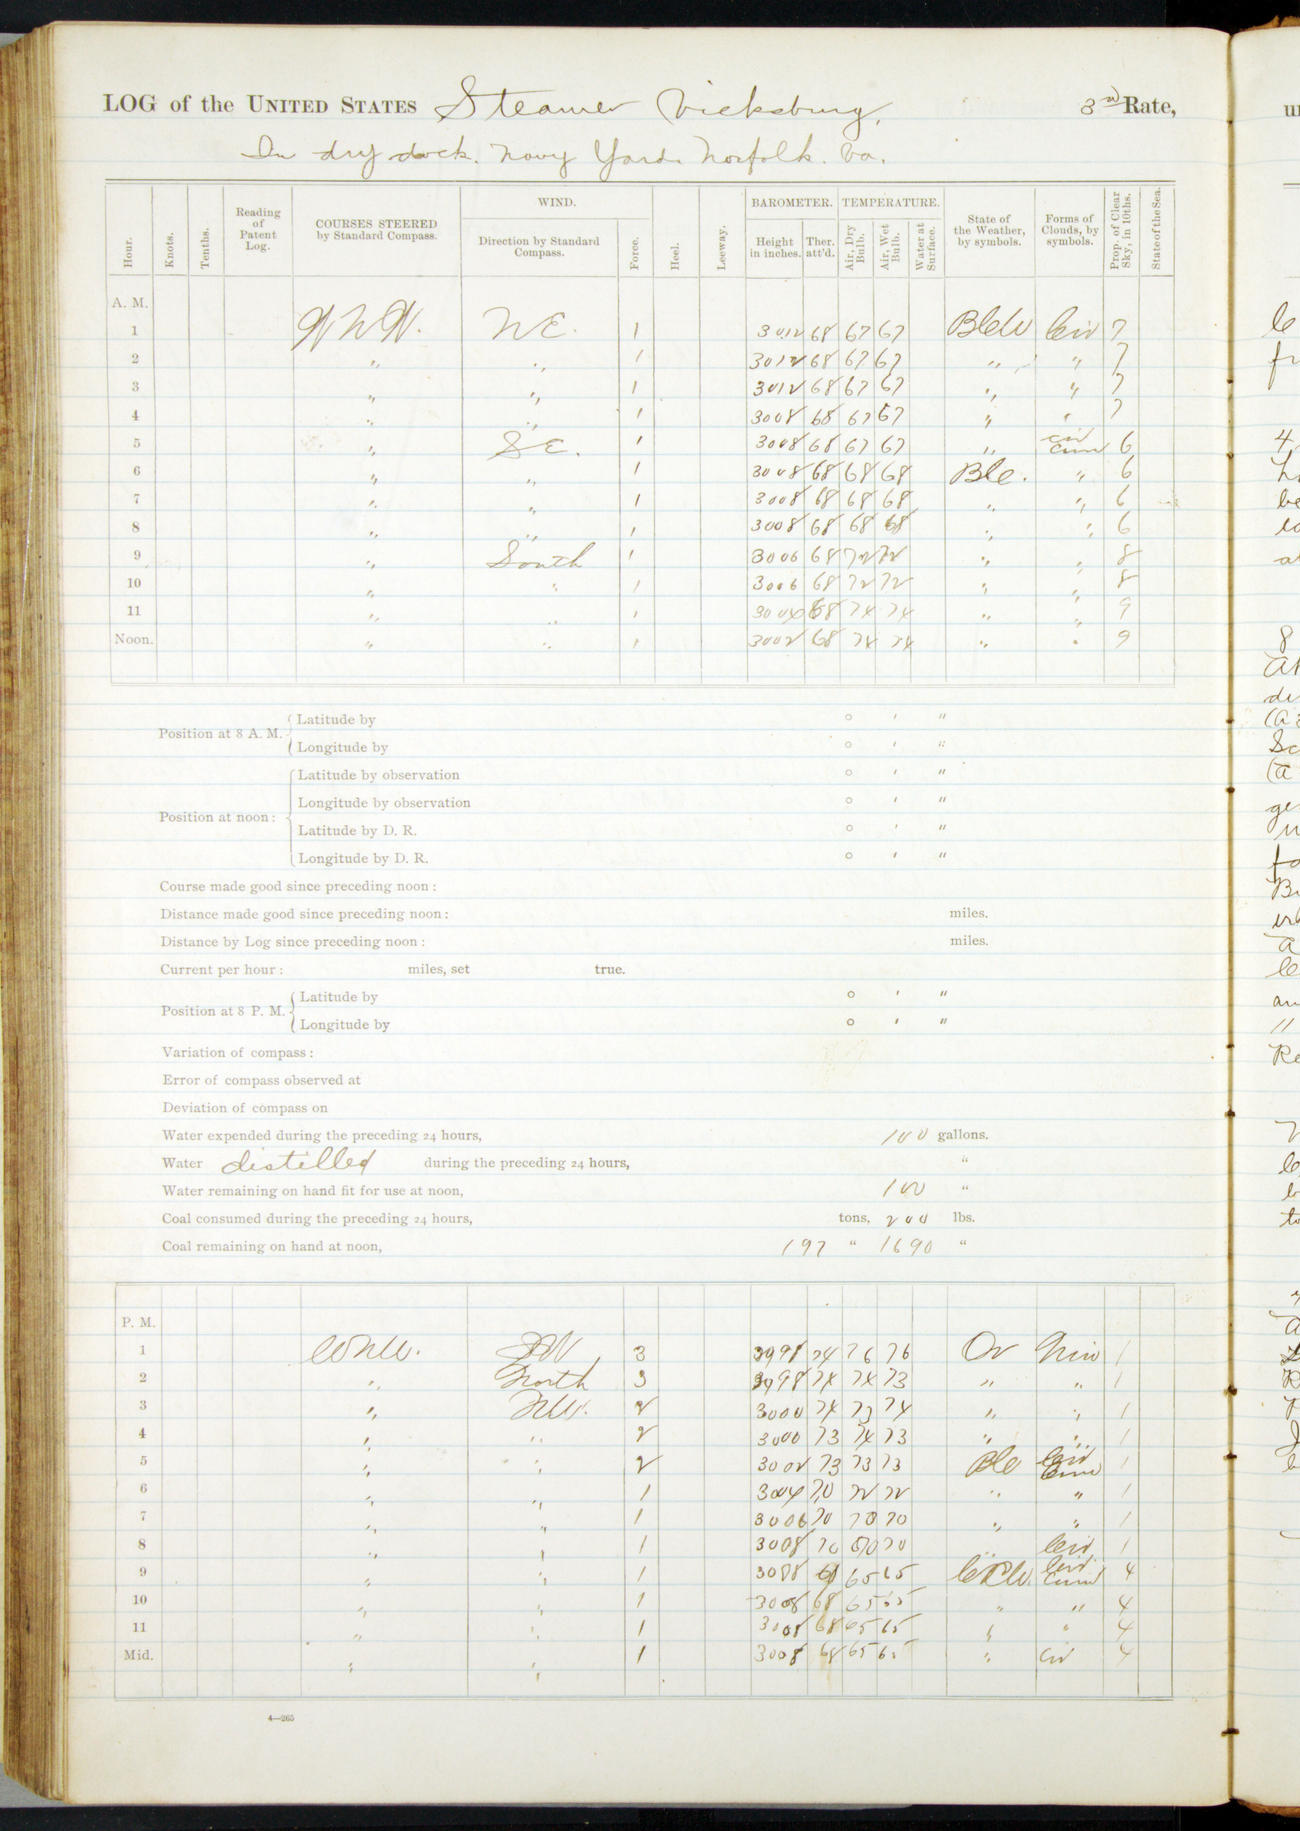 LOG of the UNITED STATES Steamer Vicksburg, 3rd Rate,
In dry dock. Navy Yard. Norfolk. Va.
Hour. Knots. Tenths. Reading of Patent Log. COURSES STEERED by Standard Compass. WIND. Direction by Standard Compass. Force. Heel. Leeway. BAROMETER. Height in inches. Ther. att'd. TEMPERATURE. Air, Dry Bulb. Air, Wet Bulb. Water at Surface. State of the Weather, by symbols. Forms of Clouds, by symbols. Prop. of Clear Sky, in 10ths. State of the Sea.
A. M.
1 WNW. NE. 1 3012 68 67 67 Bcw Cir 7
2 " " 1 3012 68 67 67 " " 7
3 " " 1 3012 68 67 67 " " 7
4 " " 1 3008 68 67 67 " " 7
5 " SE. 1 3008 68 67 67 " Cir Cum 6
6 " " 1 3008 68 68 68 Bc. " 6
7 " " 1 3008 68 68 68 " " 6
8 " " 1 3008 68 68 68 " " 6
9 " South 1 3006 68 72 72 " " 8
10 " " 1 3006 68 72 72 " " 8
11 " " 1 3004 68 74 74 " " 9
Noon. " " 1 3002 68 74 74 " " 9
Position at 8 A. M. Latitude by ° ' "
Longitude by ° ' "
Position at noon: Latitude by observation ° ' "
Longitude by observation ° ' "
Latitude by D. R. ° ' "
Longitude by D. R. ° ' "
Course made good since preceding noon:
Distance made good since preceding noon: miles.
Distance by Log since preceding noon: miles.
Current per hour: miles, set true.
Position at 8 P. M. Latitude by ° ' "
Longitude by ° ' "
Variation of compass:
Error of compass observed at
Deviation of compass on
Water expended during the preceding 24 hours, 100 gallons.
Water distilled during the preceding 24 hours, "
Water remaining on hand fit for use at noon, 100 "
Coal consumed during the preceding 24 hours, tons, 200 lbs.
Coal remaining on hand at noon, 197 " 1690 "
P. M.
1 WNW. 3 74 76 76 Or Nim 1
2 " North 3 74 74 73 " " 1
3 " NW. 2 3000 74 73 74 " " 1
4 " " 2 3000 73 74 73 " " 1
5 " " 2 3002 73 73 73 Bc Cir Cum 1
6 " " 1 3004 70 72 72 " " 1
7 " " 1 3006 70 70 70 " " 1
8 " " 1 3008 70 70 " Cir 1
9 " " 1 3008 65 65 Cir Cum 4
10 " " 1 3008 68 65 65 " " 4
11 " " 1 3008 68 65 65 " " 4
Mid. " " 1 3008 68 65 65 " Cir 4
4—265